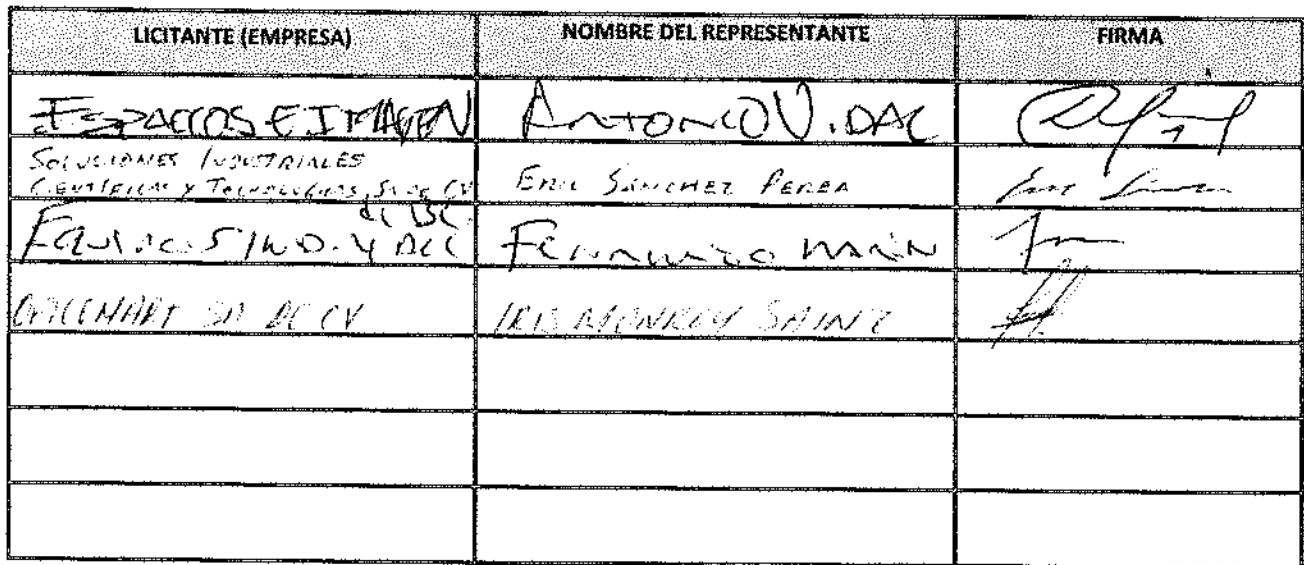 LICITANTE (EMPRESA) NOMBRE DEL REPRESENTANTE FIRMA
ESPACIOS E IMAGEN ANTONIO VIDAL
SOLUCIONES INDUSTRIALES
CIENTIFICAS Y TECNOLOGICAS, SA DE CV ERIC SÁNCHEZ PEREA
de BC
EQUIPOS IND. Y FERNANDO MARIN
SA DE CV IRIS MONROY SAINZ